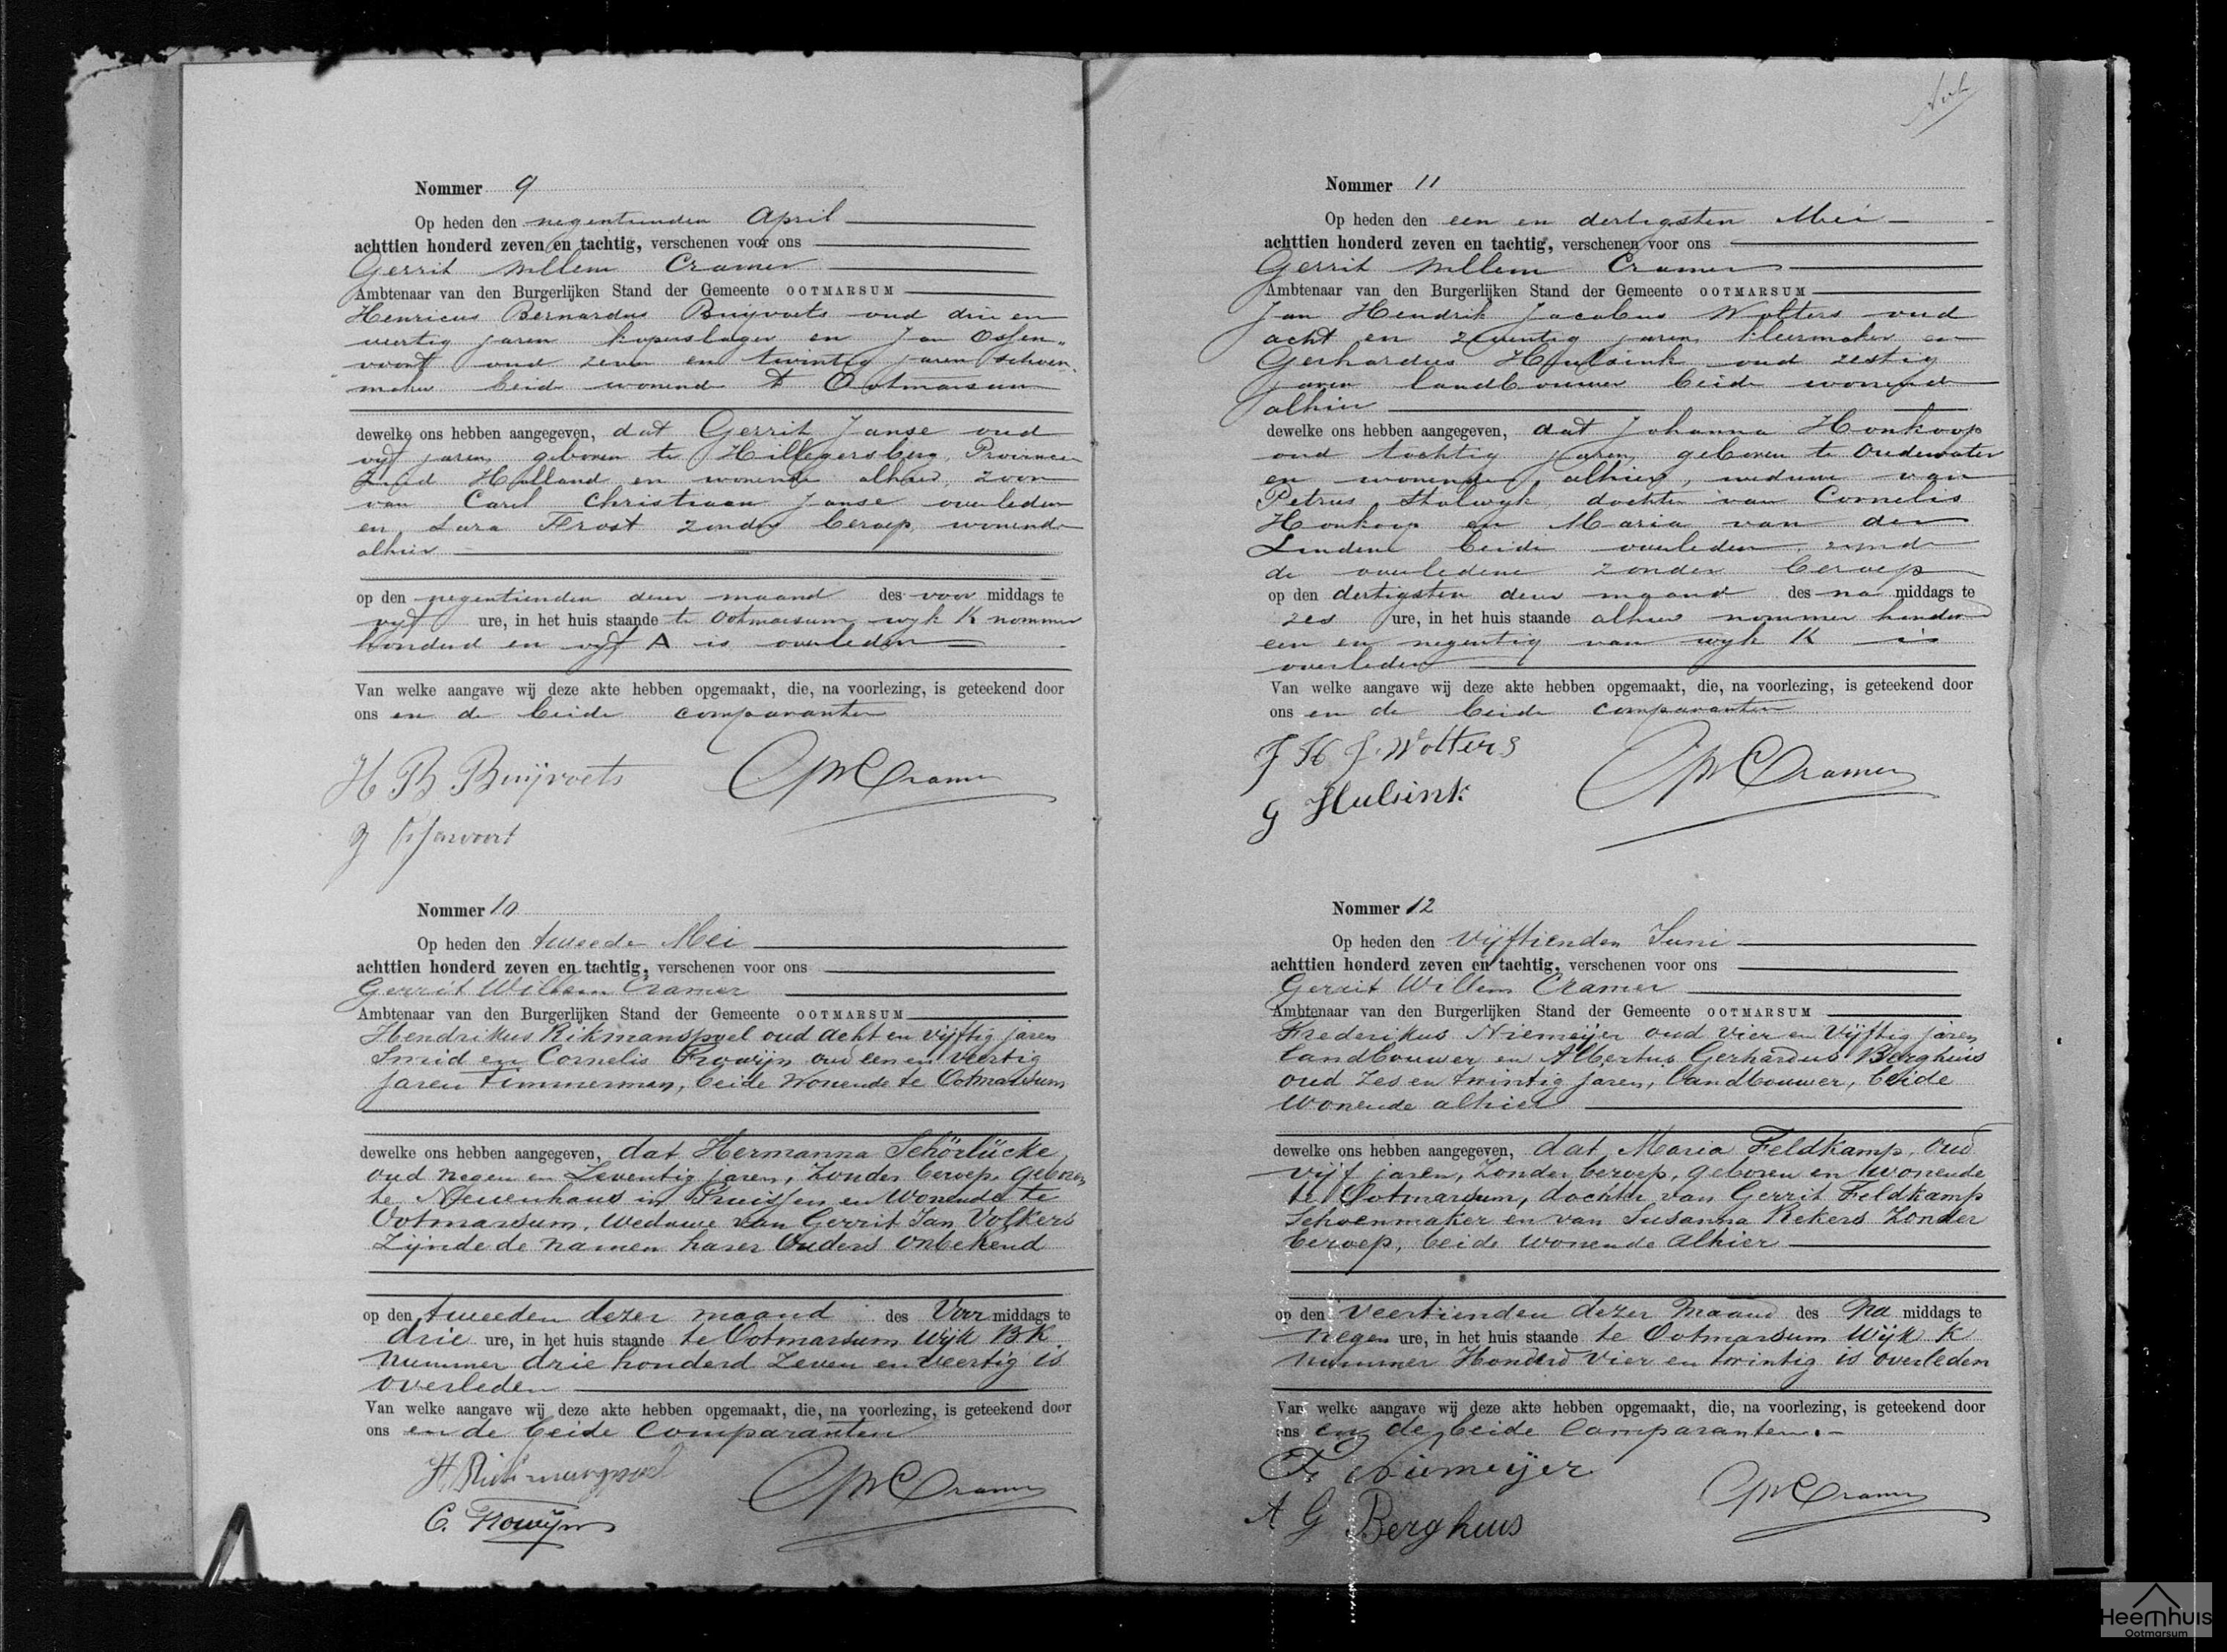 Nommer 9
Op heden den negentienden April
achttien honderd zeven en tachtig, verschenen voor ons
Gerrit Willem Cramer
Ambtenaar van den Burgerlijken Stand der Gemeente OOTMARSUM
Henricus Bernardus Buijvoets oud drie en
veertig jaren koperslager en Jan Ossen-
voort oud zeven en twintig jaren schoen-
maker beide wonende te Ootmarsum
dewelke ons hebben aangegeven, dat Gerrit Janse oud
vijf jaren, geboren te Hillegersberg, Provincie
Zuid Holland en wonende alhier, zoon
van Carel Christiaan Janse overleden
en Sara Frost zonder beroep, wonende
alhier
op den negentienden dezer maand des voor middags te
vijf ure, in het huis staande te Ootmarsum wyk K nommer
honderd en vijf A is overleden
Van welke aangave wij deze akte hebben opgemaakt, die, na voorlezing, is geteekend door
ons en de beide comparanten
H B Buijvoets GWCramer
J Ossenvoort
Nommer 10
Op heden den tweede Mei
achttien honderd zeven en tachtig, verschenen voor ons
Gerrit Willem Cramer
Ambtenaar van den Burgerlijken Stand der Gemeente OOTMARSUM
Hendrikus Rikmanspoel oud acht en vijftig jaren
Smid en Cornelis Frowijn oud een en veertig
jaren Timmerman, beide wonende te Ootmarsum
dewelke ons hebben aangegeven, dat Hermanna Schörlücke,
oud negen en Zeventig jaren, Zonder beroep, geboren
te Neuenhaus in Pruissen en wonende te
Ootmarsum, Weduwe van Gerrit Jan Volkers
Zijnde de namen harer Ouders onbekend
op den tweeden dezer maand des Voor middags te
drie ure, in het huis staande te Ootmarsum Wijk BK
Nummer drie honderd Zeven en veertig is
overleden
Van welke aangave wij deze akte hebben opgemaakt, die, na voorlezing, is geteekend door
ons en de beide Comparanten
H. Rikmanspoel GWCramer
C. Frowijn
Nommer 11
Op heden den een en dertigsten Mei
achttien honderd zeven en tachtig, verschenen voor ons
Gerrit Willem Cramer
Ambtenaar van den Burgerlijken Stand der Gemeente OOTMARSUM
Jan Hendrik Jacobus Wolters oud
acht en zeventig jaren, kleermaker en
Gerhardus Hulsink oud zestig
jaren landbouwer beide wonende
alhier
dewelke ons hebben aangegeven, dat Johanna Honkoop
oud tachtig jaren, geboren te Oudewater
en wonende alhier, weduwe van
Petrus Stolwyk, dochter van Cornelis
Honkoop en Maria van der
Linden beide overleden zynde
de overledene zonder beroep
op den dertigsten dezer maand des na middags te
zes ure, in het huis staande alhier nommer honderd
een en negentig van wyk K is
overleden
Van welke aangave wij deze akte hebben opgemaakt, die, na voorlezing, is geteekend door
ons en de beide comparanten
J H J. Wolters GWCramer
G Hulsink
Nommer 12
Op heden den Vijftienden Juni
achttien honderd zeven en tachtig, verschenen voor ons
Gerrit Willem Cramer
Ambtenaar van den Burgerlijken Stand der Gemeente OOTMARSUM
Frederikus Niemeijer oud vier en Vijftig jaren
landbouwer en Albertus Gerhardus Berghuis
oud Zes en twintig jaren, landbouwer, beide
Wonende alhier
dewelke ons hebben aangegeven, dat Maria Feldkamp, oud
vijf jaren, Zonder beroep, geboren en Wonende
te Ootmarsum, dochter van Gerrit Feldkamp
Schoenmaker en van Susanna Rekers Zonder
beroep, beide Wonende alhier
op den Veertienden dezer Maand des Na middags te
Negen ure, in het huis staande te Ootmarsum Wijk K
nummer Honderd vier en twintig is overleden
Van welke aangave wij deze akte hebben opgemaakt, die, na voorlezing, is geteekend door
ons en de beide Comparanten.
F. Niemeijer GWCramer
A G Berghuis
Heemhuis
Ootmarsum